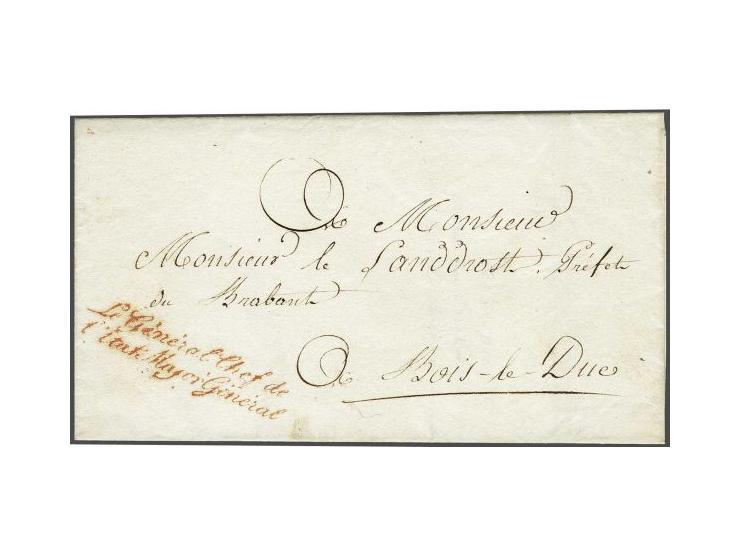 A Monsieur
Monsieur le Landdrost, Préfet
du Brabant
A Bois-le-Duc
Le Général Chef de
l'Etat Major Général